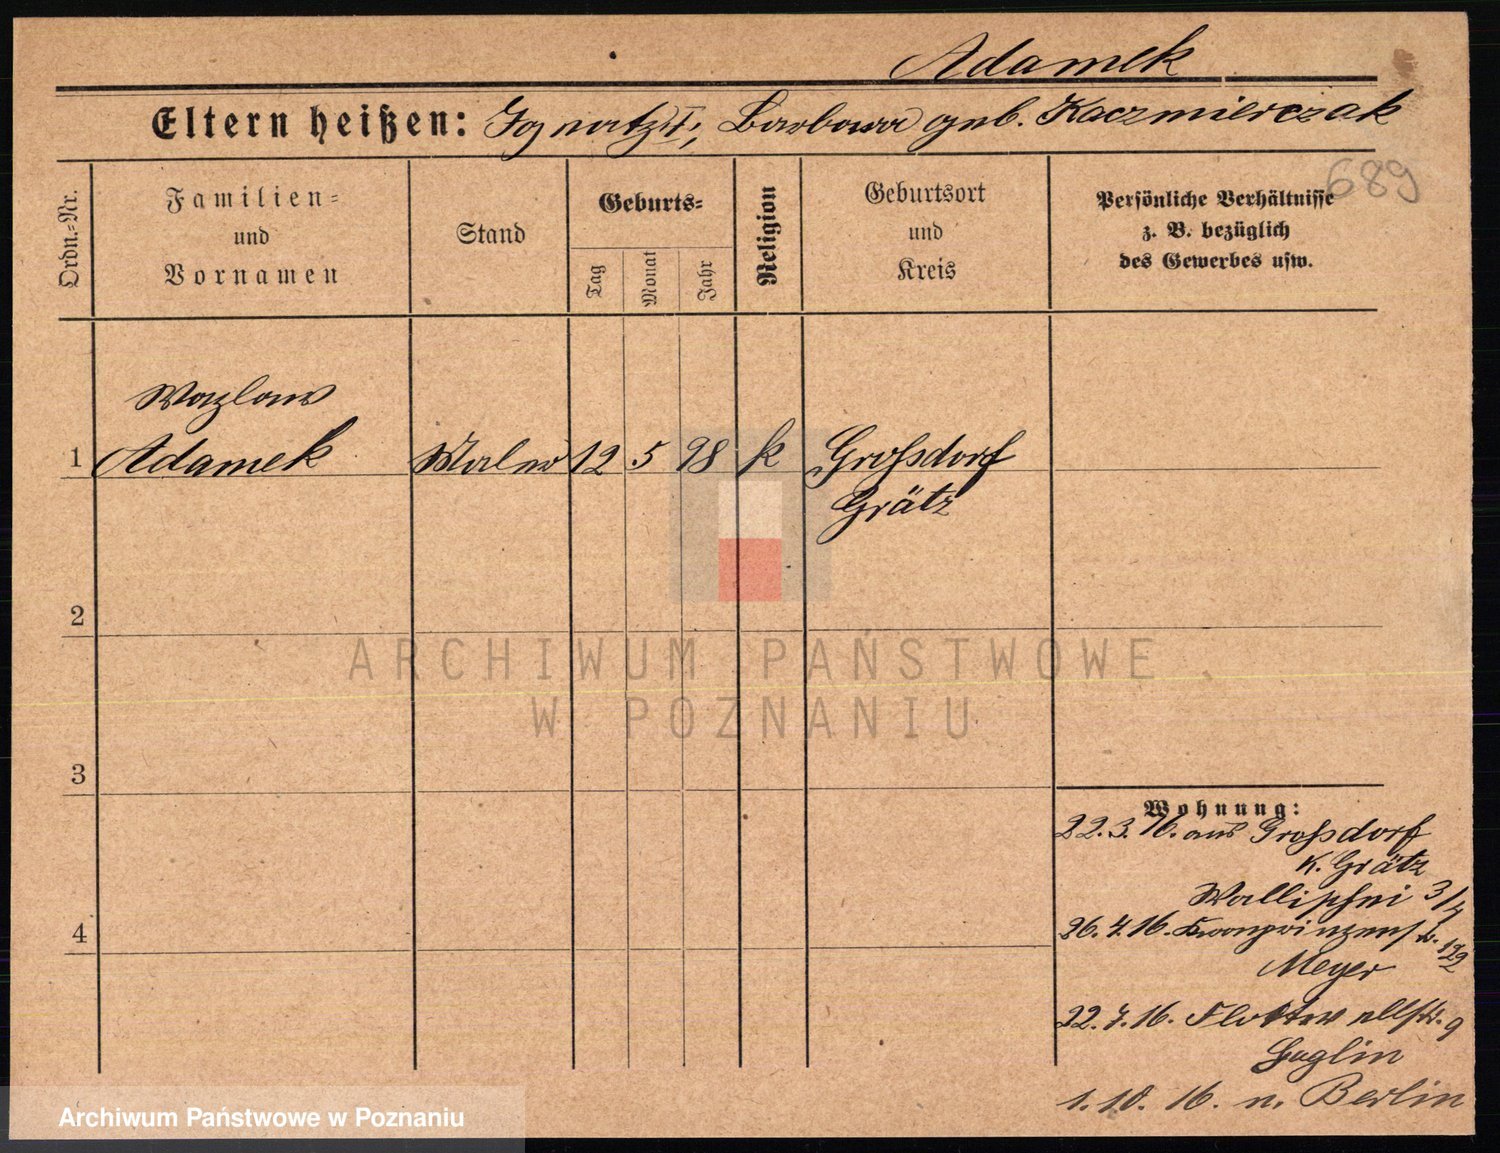 Adamek
Eltern heißen: Ignatz I; Barbara geb. Kaczmierczak
689
Ordn.=Nr.
Familien=
und
Vornamen
Stand
Geburts=
Tag
Monat
Jahr
Religion
Geburtsort
und
Kreis
Persönliche Verhältnisse
z. B. bezüglich
des Gewerbes usw.
Wazlaw
1 Adamek Maler 12 5 98 k Großdorf
Grätz
2
ARCHIWUM PAŃSTWOWE
W POZNANIU
3
Wohnung:
22.3.16. aus Großdorf
K. Grätz
Wallischei 3/4
4
26.4.16. Kronprinzenstr. 122
Meyer
22.7.16. Flottwellstr. 9
1.10.16. n. Berlin
Archiwum Państwowe w Poznaniu